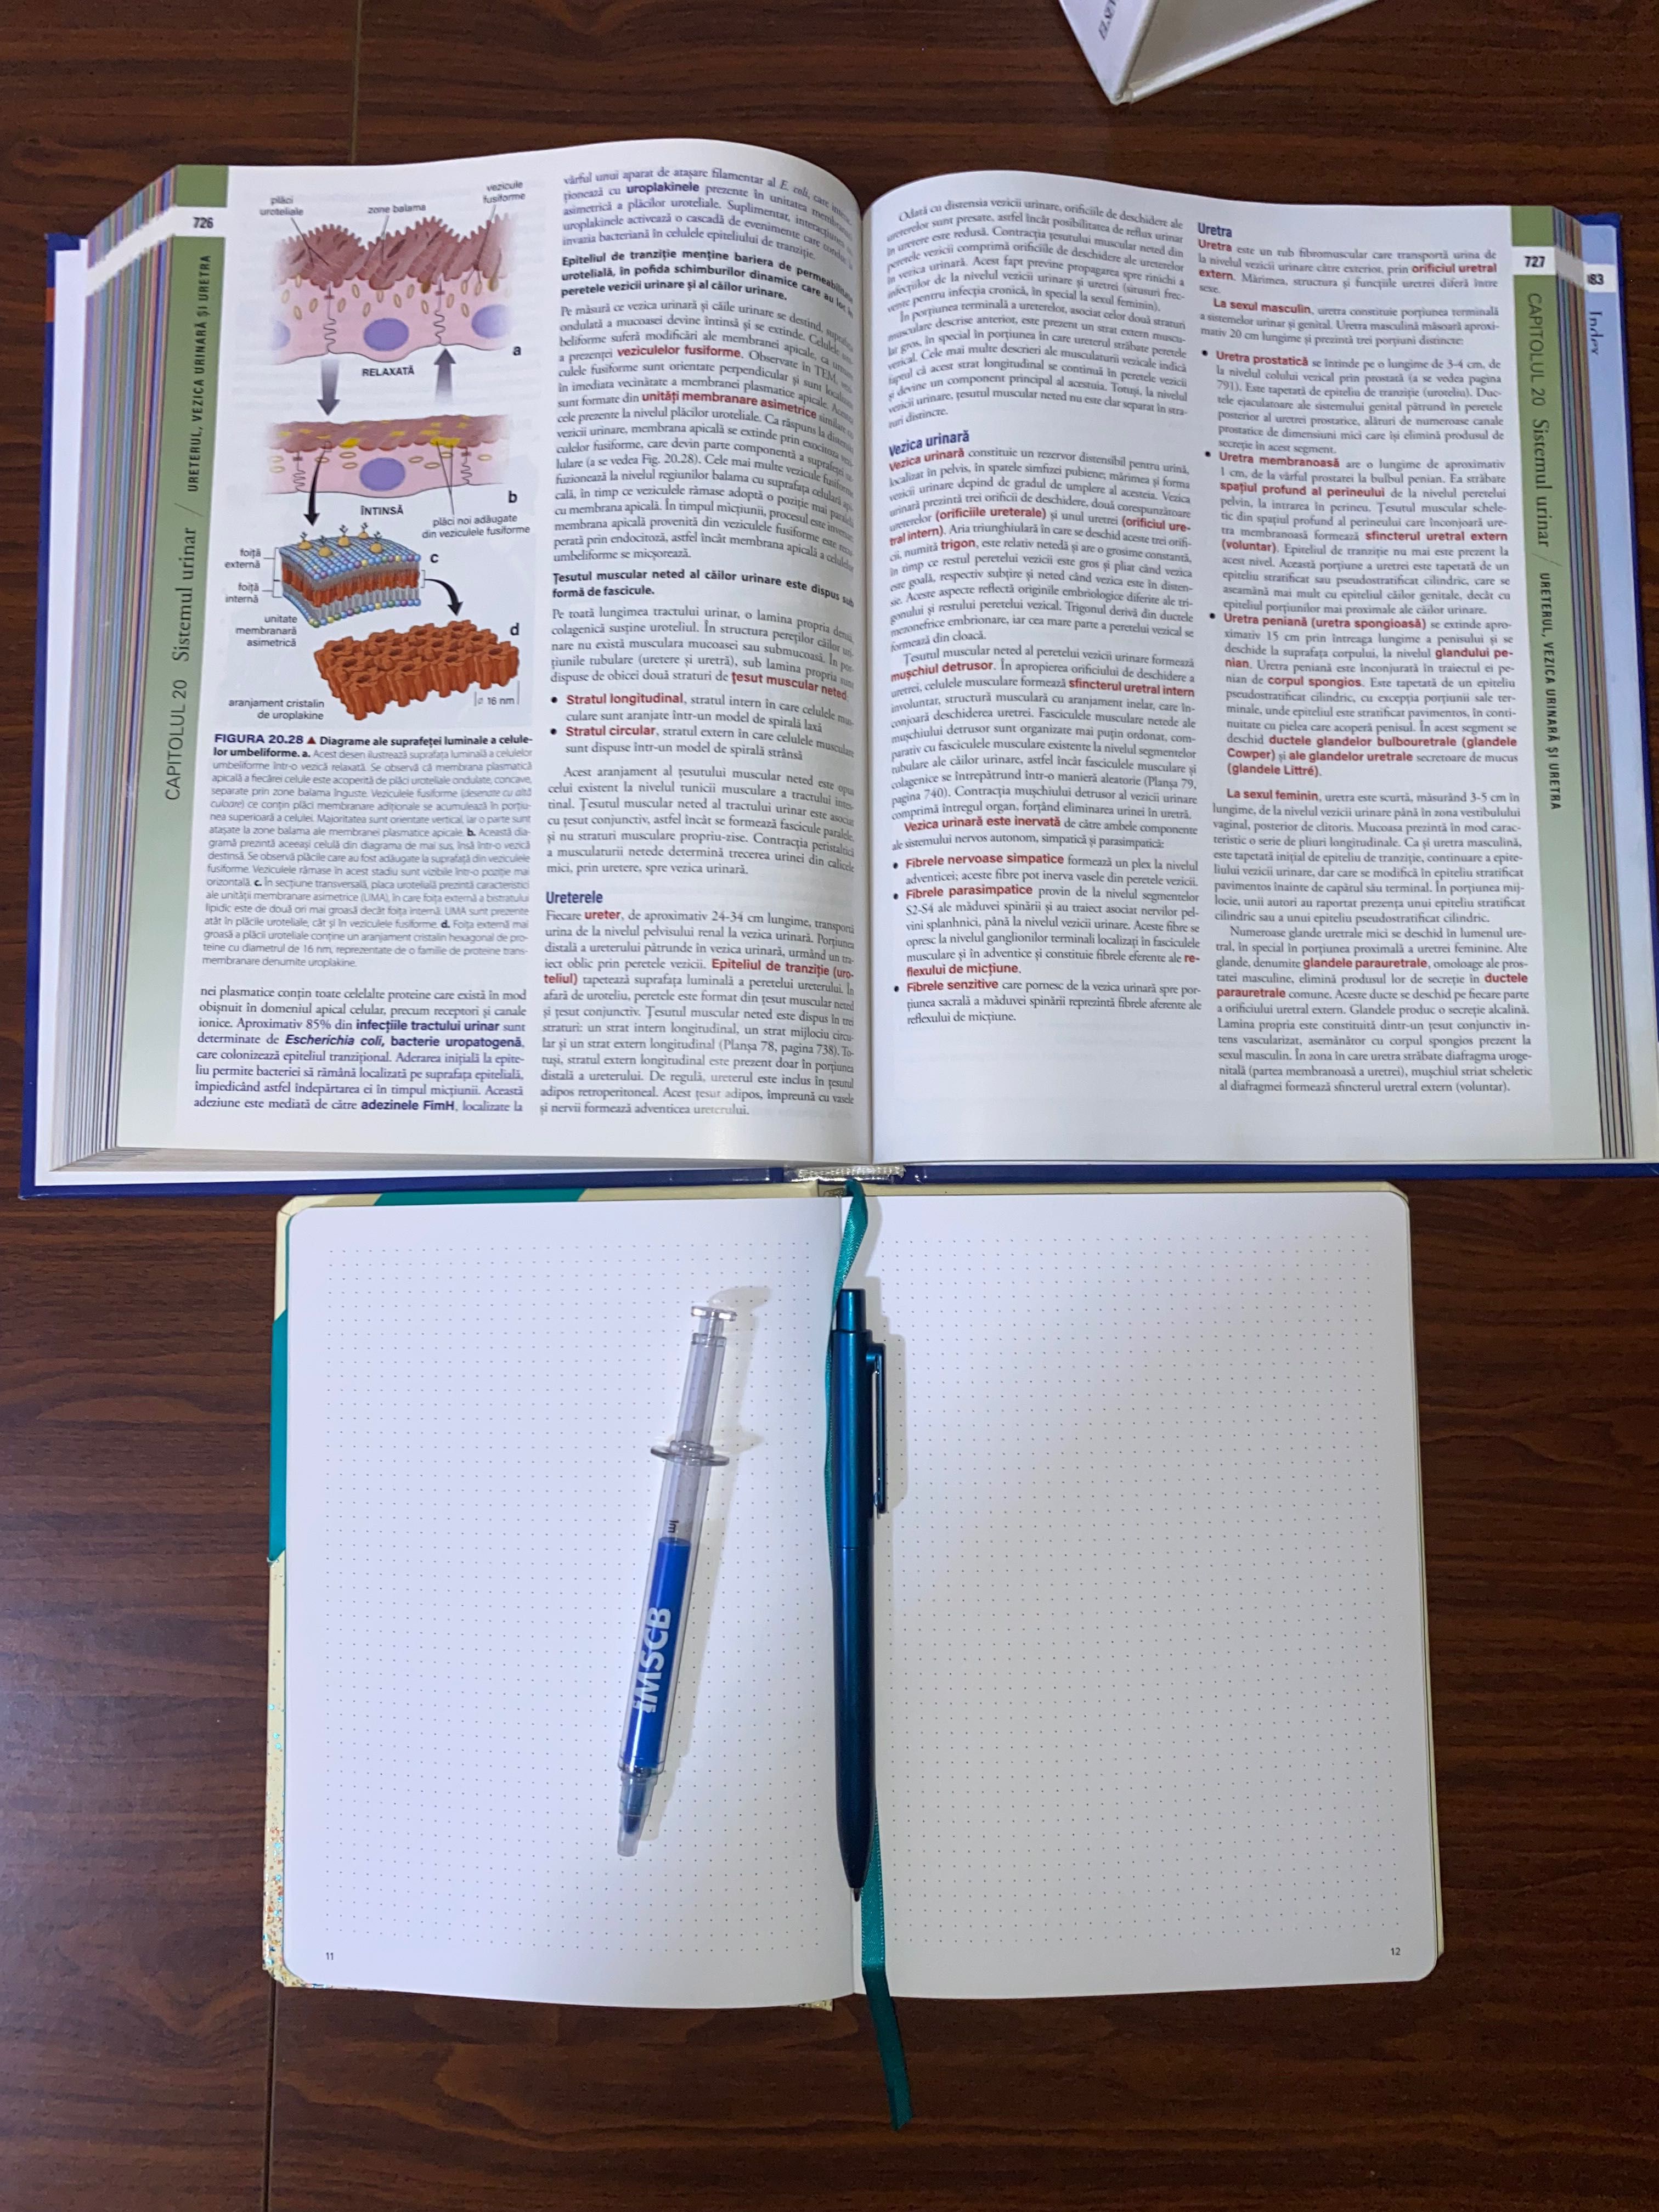 ELSE
726
CAPITOLUL 20 Sistemul urinar / URETERUL, VEZICA URINARĂ ȘI URETRA
plăci
uroteliale
zone balama
vezicule
fusiforme
a
RELAXATĂ
b
ÎNTINSĂ
plăci noi adăugate
din veziculele fusiforme
c
foiță
externă
foiță
internă
unitate
membranară
asimetrică
d
aranjament cristalin
de uroplakine
16 nm
FIGURA 20.28 ▲ Diagrame ale suprafeței luminale a celule-
lor umbeliforme. a. Acest desen ilustrează suprafața luminală a celulelor
umbeliforme într-o vezică relaxată. Se observă că membrana plasmatică
apicală a fiecărei celule este acoperită de plăci uroteliale ondulate, concave,
separate prin zone balama înguste. Veziculele fusiforme (desenate cu altă
culoare) ce conțin plăci membranare adiționale se acumulează în porțiu-
nea superioară a celulei. Majoritatea sunt orientate vertical, iar o parte sunt
atașate la zone balama ale membranei plasmatice apicale. b. Această dia-
gramă prezintă aceeași celulă din diagrama de mai sus, însă într-o vezică
destinsă. Se observă plăcile care au fost adăugate la suprafață din veziculele
fusiforme. Veziculele rămase în acest stadiu sunt vizibile într-o poziție mai
orizontală. c. În secțiune transversală, placa urotelială prezintă caracteristici
ale unității membranare asimetrice (UMA), în care foița externă a bistratului
lipidic este de două ori mai groasă decât foița internă. UMA sunt prezente
atât în plăcile uroteliale, cât și în veziculele fusiforme. d. Foița externă mai
groasă a plăcii uroteliale conține un aranjament cristalin hexagonal de pro-
teine cu diametrul de 16 nm, reprezentate de o familie de proteine trans-
membranare denumite uroplakine.
nei plasmatice conțin toate celelalte proteine care există în mod
obișnuit în domeniul apical celular, precum receptori și canale
ionice. Aproximativ 85% din infecțiile tractului urinar sunt
determinate de Escherichia coli, bacterie uropatogenă,
care colonizează epiteliul tranzițional. Aderarea inițială la epite-
liu permite bacteriei să rămână localizată pe suprafața epitelială,
împiedicând astfel îndepărtarea ei în timpul micțiunii. Această
adeziune este mediată de către adezinele FimH, localizate la
vârful unui aparat de atașare filamentar al E. coli, care
ționează cu uroplakinele prezente în unitatea
asimetrică a plăcilor uroteliale. Suplimentar,
uroplakinele activează o cascadă de evenimente care
invazia bacteriană în celulele epiteliului de tranziție.
Epiteliul de tranziție menține bariera de
urotelială, în pofida schimburilor dinamice care au loc
peretele vezicii urinare și al căilor urinare.
Pe măsură ce vezica urinară și căile urinare se destind,
ondulată a mucoasei devine întinsă și se extinde. Celulele
beliforme suferă modificări ale membranei apicale, ca
a prezenței veziculelor fusiforme. Observate în TEM,
culele fusiforme sunt orientate perpendicular și sunt
în imediata vecinătate a membranei plasmatice apicale.
sunt formate din unități membranare asimetrice
cele prezente la nivelul plăcilor uroteliale. Ca răspuns la
vezicii urinare, membrana apicală se extinde prin exocitoza
culelor fusiforme, care devin parte componentă a suprafeței
lulare (a se vedea Fig. 20.28). Cele mai multe vezicule fusiforme
fuzionează la nivelul regiunilor balama cu suprafața celulară
cală, în timp ce veziculele rămase adoptă o poziție mai
cu membrana apicală. În timpul micțiunii, procesul este
membrana apicală provenită din veziculele fusiforme este
perată prin endocitoză, astfel încât membrana apicală a celulelor
umbeliforme se micșorează.
Țesutul muscular neted al căilor urinare este dispus sub
formă de fascicule.
Pe toată lungimea tractului urinar, o lamina propria densă,
colagenică susține uroteliul. În structura pereților căilor uri-
nare nu există musculara mucoasei sau submucoasă. În por-
țiunile tubulare (uretere și uretră), sub lamina propria sunt
dispuse de obicei două straturi de țesut muscular neted.
• Stratul longitudinal, stratul intern în care celulele mus-
culare sunt aranjate într-un model de spirală laxă
• Stratul circular, stratul extern în care celulele musculare
sunt dispuse într-un model de spirală strânsă
Acest aranjament al țesutului muscular neted este opus
celui existent la nivelul tunicii musculare a tractului intes-
tinal. Țesutul muscular neted al tractului urinar este asociat
cu țesut conjunctiv, astfel încât se formează fascicule paralele,
și nu straturi musculare propriu-zise. Contracția peristaltică
a musculaturii netede determină trecerea urinei din calicele
mici, prin uretere, spre vezica urinară.
Ureterele
Fiecare ureter, de aproximativ 24-34 cm lungime, transportă
urina de la nivelul pelvisului renal la vezica urinară. Porțiunea
distală a ureterului pătrunde în vezica urinară, urmând un tra-
iect oblic prin peretele vezicii. Epiteliul de tranziție (uro-
teliul) tapetează suprafața luminală a peretelui ureterului. În
afară de uroteliu, peretele este format din țesut muscular neted
și țesut conjunctiv. Țesutul muscular neted este dispus în trei
straturi: un strat intern longitudinal, un strat mijlociu circu-
lar și un strat extern longitudinal (Planșa 78, pagina 738). To-
tuși, stratul extern longitudinal este prezent doar în porțiunea
distală a ureterului. De regulă, ureterul este inclus în țesutul
adipos retroperitoneal. Acest țesut adipos, împreună cu vasele
și nervii formează adventicea ureterului.
Odată cu distensia vezicii urinare, orificiile de deschidere ale
ureterelor sunt presate, astfel încât posibilitatea de reflux urinar
în uretere este redusă. Contracția țesutului muscular neted din
peretele vezicii comprimă orificiile de deschidere ale ureterelor
în vezica urinară. Acest fapt previne propagarea spre rinichi a
infecțiilor de la nivelul vezicii urinare și uretrei (situsuri frec-
vente pentru infecția cronică, în special la sexul feminin).
În porțiunea terminală a ureterelor, asociat celor două straturi
musculare descrise anterior, este prezent un strat extern muscu-
lar gros, în special în porțiunea în care ureterul străbate peretele
vezical. Cele mai multe descrieri ale musculaturii vezicale indică
faptul că acest strat longitudinal se continuă în peretele vezicii
și devine un component principal al acestuia. Totuși, la nivelul
vezicii urinare, țesutul muscular neted nu este clar separat în stra-
turi distincte.
Vezica urinară
Vezica urinară constituie un rezervor distensibil pentru urină,
localizat în pelvis, în spatele simfizei pubiene; mărimea și forma
vezicii urinare depind de gradul de umplere al acesteia. Vezica
urinară prezintă trei orificii de deschidere, două corespunzătoare
ureterelor (orificiile ureterale) și unul uretrei (orificiul ure-
tral intern). Aria triunghiulară în care se deschid aceste trei orifi-
cii, numită trigon, este relativ netedă și are o grosime constantă,
în timp ce restul peretelui vezicii este gros și pliat când vezica
este goală, respectiv subțire și neted când vezica este în disten-
sie. Aceste aspecte reflectă originile embriologice diferite ale tri-
gonului și restului peretelui vezical. Trigonul derivă din ductele
mezonefrice embrionare, iar cea mare parte a peretelui vezical se
formează din cloacă.
Țesutul muscular neted al peretelui vezicii urinare formează
mușchiul detrusor. În apropierea orificiului de deschidere a
uretrei, celulele musculare formează sfincterul uretral intern
involuntar, structură musculară cu aranjament inelar, care în-
conjoară deschiderea uretrei. Fasciculele musculare netede ale
mușchiului detrusor sunt organizate mai puțin ordonat, com-
parativ cu fasciculele musculare existente la nivelul segmentelor
tubulare ale căilor urinare, astfel încât fasciculele musculare și
colagenice se întrepătrund într-o manieră aleatorie (Planșa 79,
pagina 740). Contracția mușchiului detrusor al vezicii urinare
comprimă întregul organ, forțând eliminarea urinei în uretră.
Vezica urinară este inervată de către ambele componente
ale sistemului nervos autonom, simpatică și parasimpatică:
• Fibrele nervoase simpatice formează un plex la nivelul
adventicei; aceste fibre pot inerva vasele din peretele vezicii.
• Fibrele parasimpatice provin de la nivelul segmentelor
S2-S4 ale măduvei spinării și au traiect asociat nervilor pel-
vini splanhnici, până la nivelul vezicii urinare. Aceste fibre se
opresc la nivelul ganglionilor terminali localizați în fasciculele
musculare și în adventice și constituie fibrele eferente ale re-
flexului de micțiune.
• Fibrele senzitive care pornesc de la vezica urinară spre por-
țiunea sacrală a măduvei spinării reprezintă fibrele aferente ale
reflexului de micțiune.
Uretra
Uretra este un tub fibromuscular care transportă urina de
la nivelul vezicii urinare către exterior, prin orificiul uretral
extern. Mărimea, structura și funcțiile uretrei diferă între
sexe.
La sexul masculin, uretra constituie porțiunea terminală
a sistemelor urinar și genital. Uretra masculină măsoară aproxi-
mativ 20 cm lungime și prezintă trei porțiuni distincte:
• Uretra prostatică se întinde pe o lungime de 3-4 cm, de
la nivelul colului vezical prin prostată (a se vedea pagina
791). Este tapetată de epiteliu de tranziție (uroteliu). Duc-
tele ejaculatoare ale sistemului genital pătrund în peretele
posterior al uretrei prostatice, alături de numeroase canale
prostatice de dimensiuni mici care își elimină produsul de
secreție în acest segment.
• Uretra membranoasă are o lungime de aproximativ
1 cm, de la vârful prostatei la bulbul penian. Ea străbate
spațiul profund al perineului de la nivelul peretelui
pelvin, la intrarea în perineu. Țesutul muscular schele-
tic din spațiul profund al perineului care înconjoară ure-
tra membranoasă formează sfincterul uretral extern
(voluntar). Epiteliul de tranziție nu mai este prezent la
acest nivel. Această porțiune a uretrei este tapetată de un
epiteliu stratificat sau pseudostratificat cilindric, care se
aseamănă mai mult cu epiteliul căilor genitale, decât cu
epiteliul porțiunilor mai proximale ale căilor urinare.
• Uretra peniană (uretra spongioasă) se extinde apro-
ximativ 15 cm prin întreaga lungime a penisului și se
deschide la suprafața corpului, la nivelul glandului pe-
nian. Uretra peniană este înconjurată în traiectul ei pe-
nian de corpul spongios. Este tapetată de un epiteliu
pseudostratificat cilindric, cu excepția porțiunii sale ter-
minale, unde epiteliul este stratificat pavimentos, în conti-
nuitate cu pielea care acoperă penisul. În acest segment se
deschid ductele glandelor bulbouretrale (glandele
Cowper) și ale glandelor uretrale secretoare de mucus
(glandele Littré).
La sexul feminin, uretra este scurtă, măsurând 3-5 cm în
lungime, de la nivelul vezicii urinare până în zona vestibulului
vaginal, posterior de clitoris. Mucoasa prezintă în mod carac-
teristic o serie de pliuri longitudinale. Ca și uretra masculină,
este tapetată inițial de epiteliu de tranziție, continuare a epite-
liului vezicii urinare, dar care se modifică în epiteliu stratificat
pavimentos înainte de capătul său terminal. În porțiunea mij-
locie, unii autori au raportat prezența unui epiteliu stratificat
cilindric sau a unui epiteliu pseudostratificat cilindric.
Numeroase glande uretrale mici se deschid în lumenul ure-
tral, în special în porțiunea proximală a uretrei feminine. Alte
glande, denumite glandele parauretrale, omoloage ale pros-
tatei masculine, elimină produsul lor de secreție în ductele
parauretrale comune. Aceste ducte se deschid pe fiecare parte
a orificiului uretral extern. Glandele produc o secreție alcalină.
Lamina propria este constituită dintr-un țesut conjunctiv in-
tens vascularizat, asemănător cu corpul spongios prezent la
sexul masculin. În zona în care uretra străbate diafragma uroge-
nitală (partea membranoasă a uretrei), mușchiul striat scheletic
al diafragmei formează sfincterul uretral extern (voluntar).
727
CAPITOLUL 20 Sistemul urinar / URETERUL, VEZICA URINARĂ ȘI URETRA
83
Index
1m
IMSCB
11
12